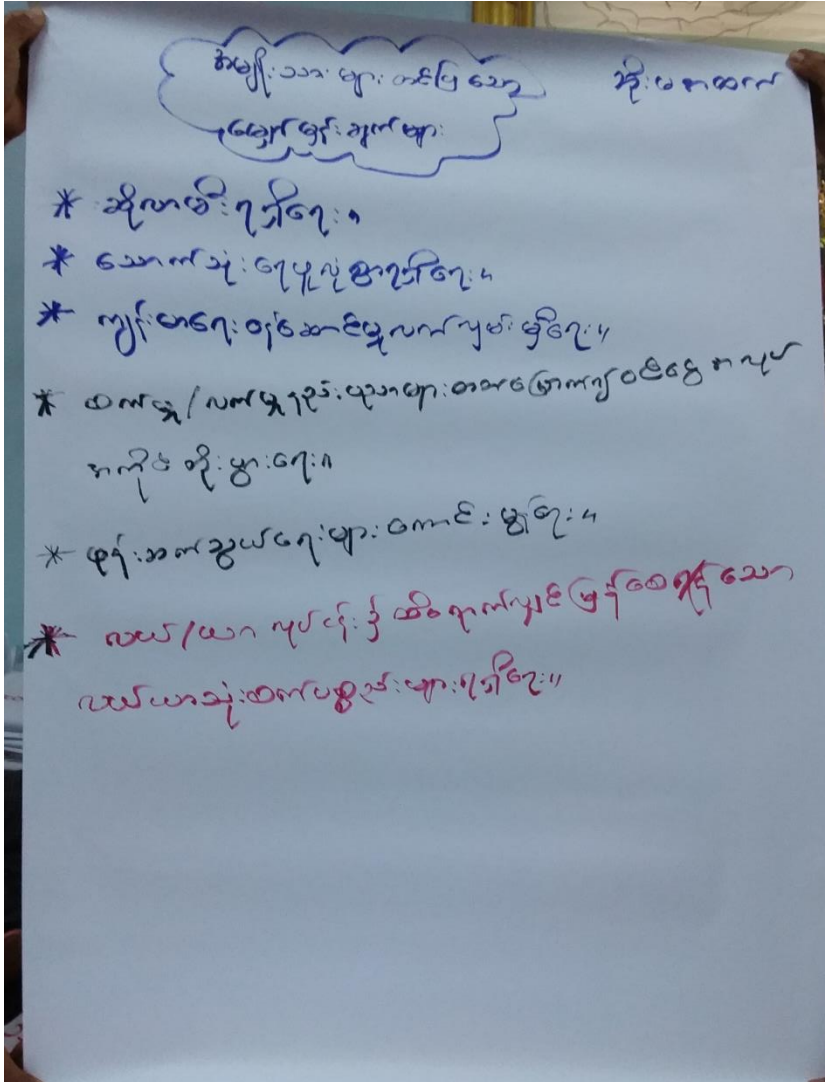 အမျိုးသားများ တင်ပြသော
မျှော်မှန်းချက်များ
* ဆိုလာမီးရရှိရေး။
* သောက်သုံးရေဖူလုံစွာရရှိရေး။
* ကျန်းမာရေးဝန်ဆောင်မှုလက်လှမ်းမှီရေး။
* စက်မှု/လက်မှုနည်းပညာများတတ်မြောက်၍ဝင်ငွေ အလုပ်
အကိုင် တိုးပွားရေး။
* ဖုန်းဆက်သွယ်ရေးများ ကောင်းမွန်ရေး။
* လယ်/ယာ လုပ်ငန်းခွင် ထိရောက်လျှင်မြန်စေရန် သော
လယ်ယာသုံးစက်ပစ္စည်းများရရှိရေး။